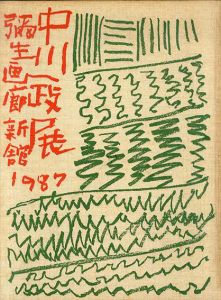 中川一政展
彌生画廊新館
1987